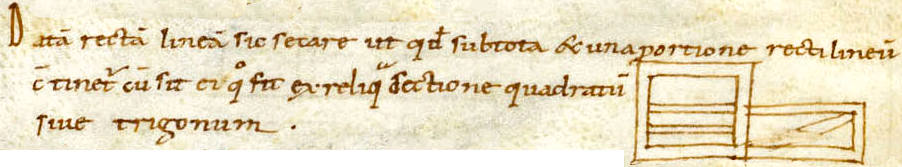 Datā rectā lineā sic secare ut qđ subtota & una portione rectilineū
c̄tinet̄ cū sit ei q̊ fit ex reliqua sectione quadratū
sive trigonum .